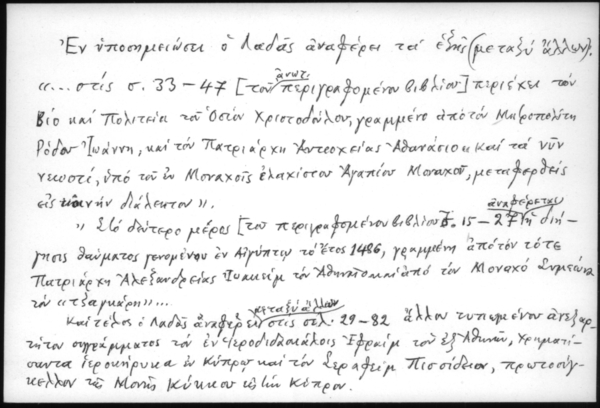 Ἐν ὑποσημειώσει ὁ Λαδᾶς ἀναφέρει τά ἑξῆς (μεταξύ ἄλλων).
«... στίς σ. 33 – 47 [τοῦ ἄνωτι περιγραφομένου βιβλίου] περιέχει τόν
Βίο καί Πολιτεία τοῦ Ὁσίου Χριστοδούλου, γραμμένο ἀπό τόν Μητροπολίτη
Ρόδου Ἰωάννη, καί τόν Πατριάρχη Ἀντιοχείας Ἀθανάσιο καί τά νῦν
νεωστί, ὑπό τοῦ ἐν Μοναχοῖς ἐλαχίστου Ἀγαπίου Μοναχοῦ, μεταφερθείς
εἰς κοινήν διάλεκτον».
» Στό δεύτερο μέρος [τοῦ περιγραφομένου βιβλίου σ. 15 – 27] ἀναφέρεται ἡ διή-
γησις θαύματος γενομένου ἐν Αἰγύπτῳ τό ἔτος 1486, γραμμένη ἀπό τόν τότε
Πατριάρχη Ἀλεξανδρείας Ἰωακείμ τόν Ἀθηναῖο καί ἀπό τόν Μοναχό Συμεών
τόν «τζαγκάρη»...
Καί τέλος ὁ Λαδᾶς ἀναφέρει μεταξύ ἄλλων στίς σελ. 29 – 82 ἄλλου τυπωμένου ἀνεξαρ-
τήτου συγγράμματος τοῦ ἐν Ἱεροδιδασκάλοις Ἐφραίμ τοῦ ἐξ Ἀθηνῶν, χρηματί-
σαντα Ἱεροκήρυκα ἐν Κύπρῳ καί τόν Σεραφείμ Πισσίδειον, πρωτοσύγ-
κελλον τῆς Μονῆς Κύκκου τῆς Κύπρον.